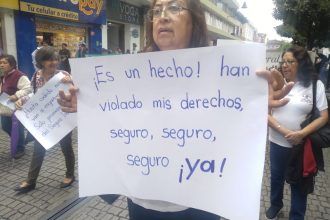 Tu celular a crédito
¡Es un hecho! han
violado mis derechos,
seguro, seguro,
seguro ¡ya!